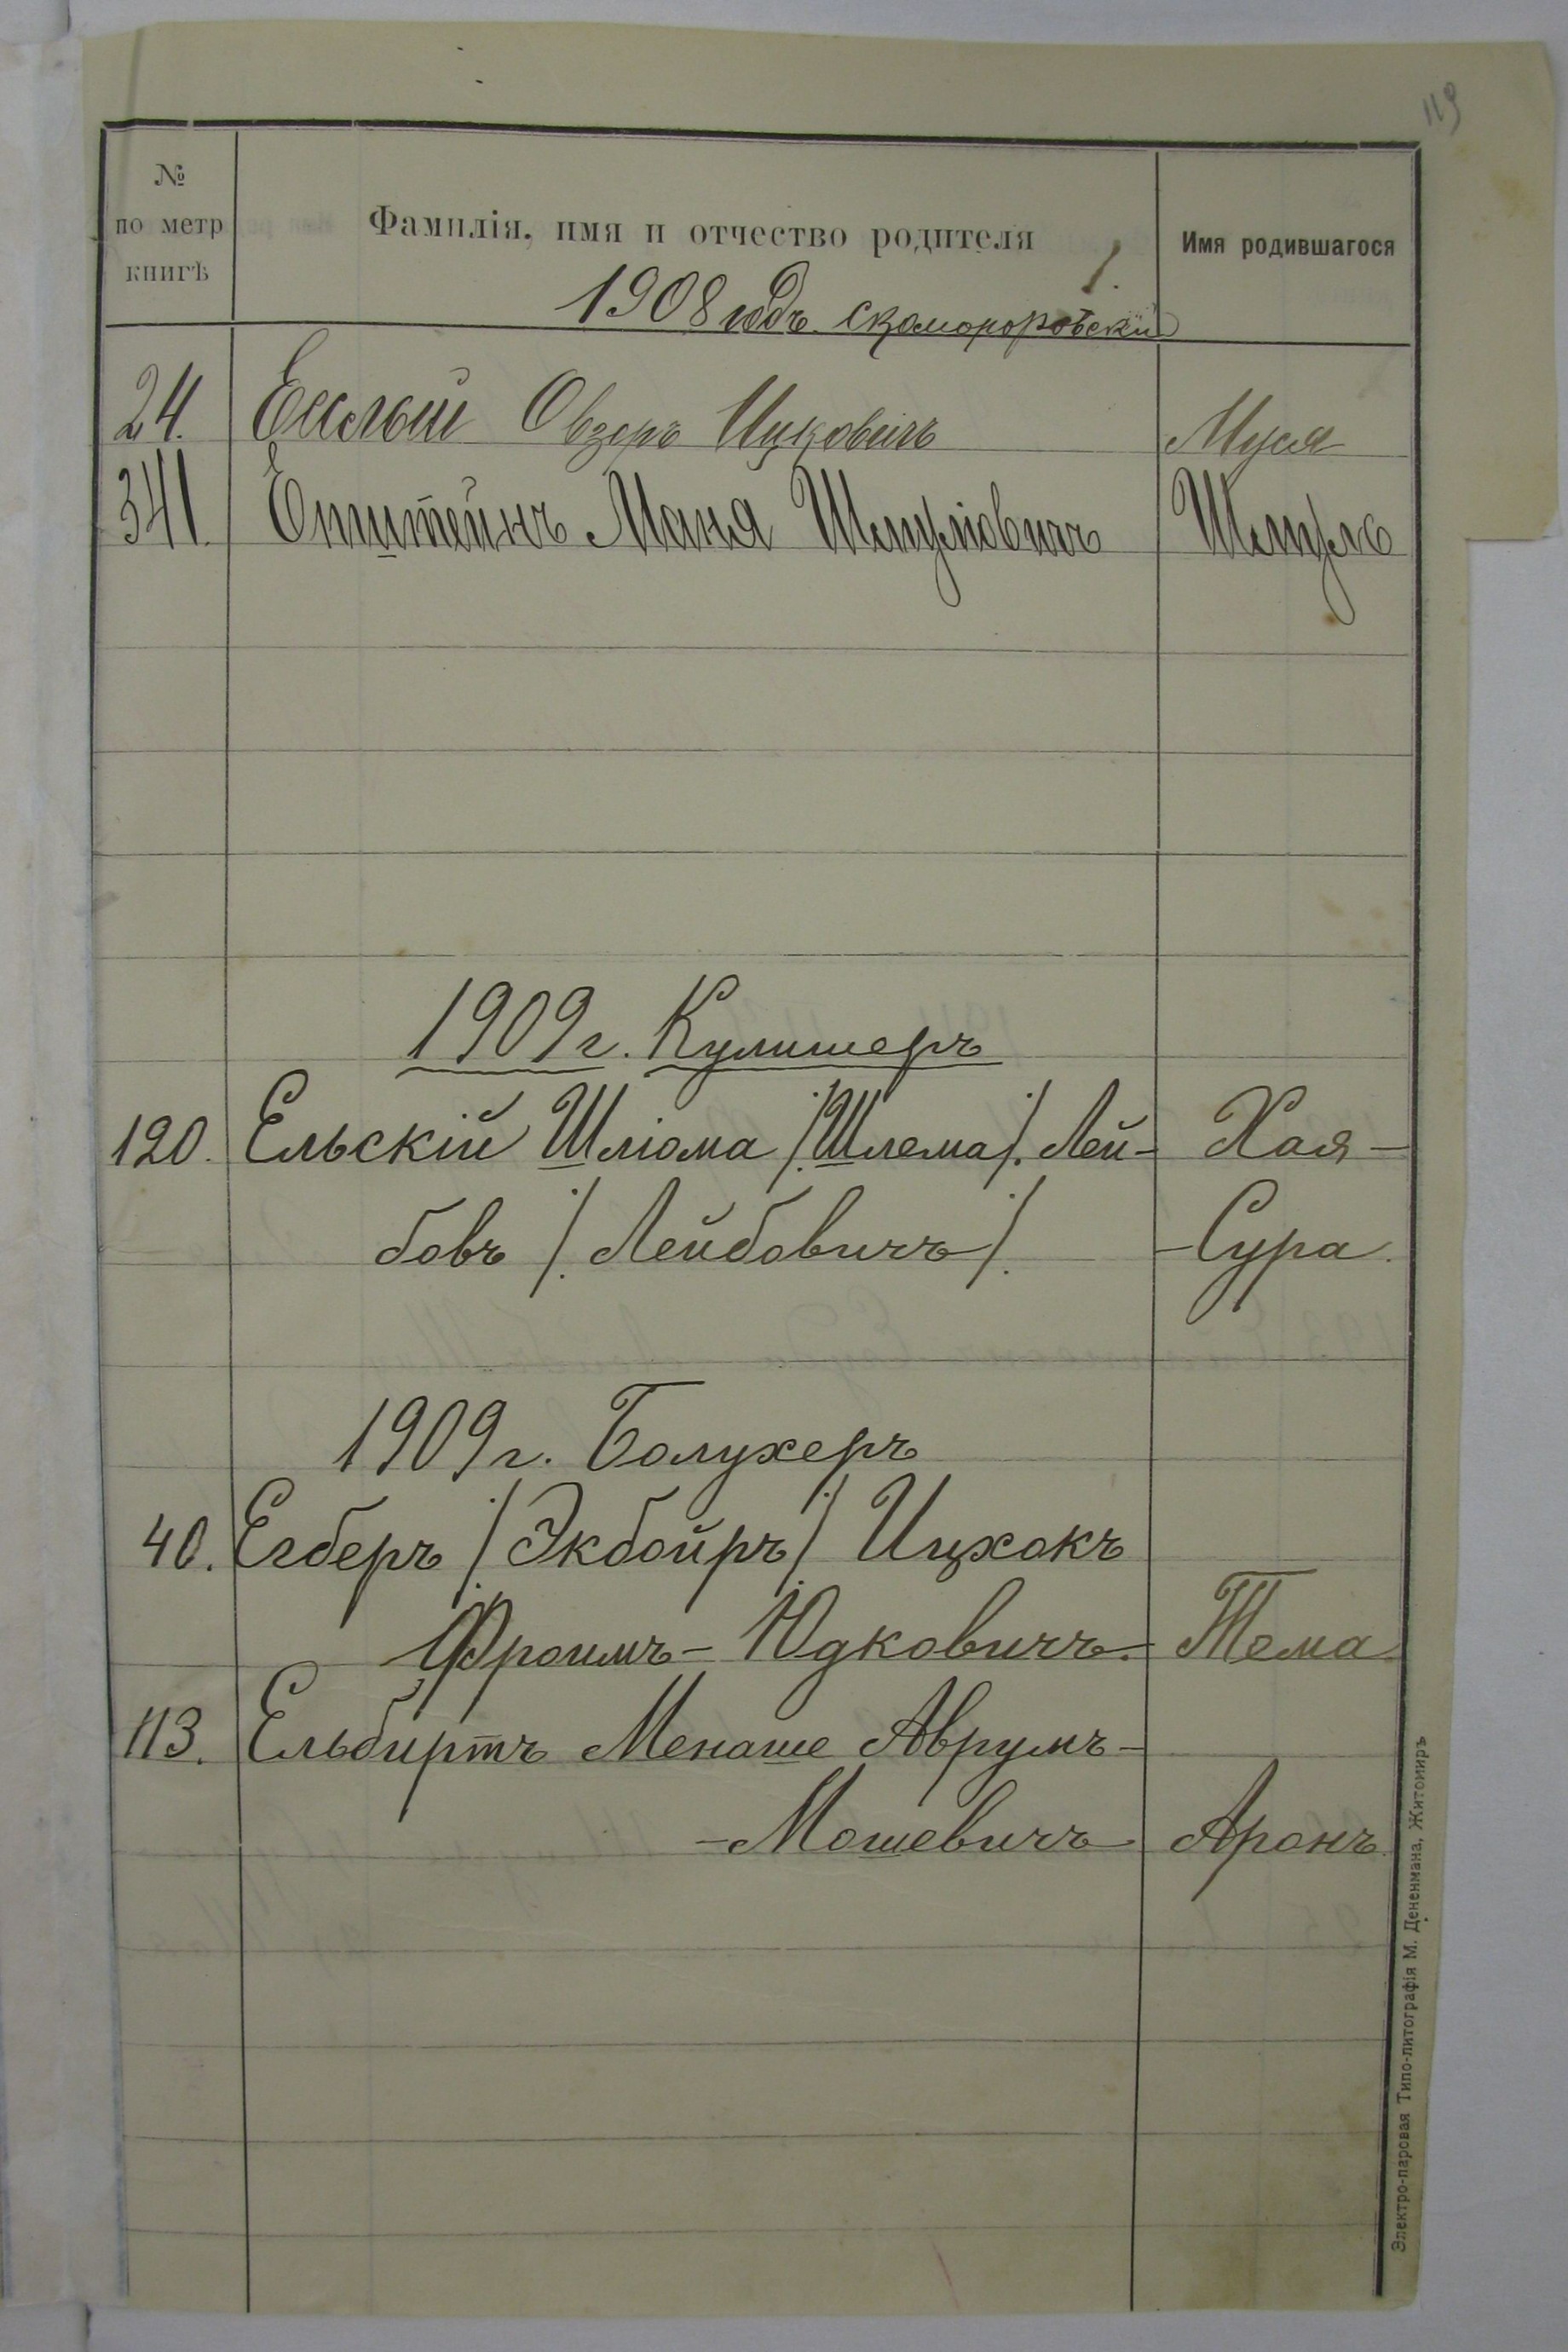 119
№
по метр
книгѣ
Фамилія, имя и отчество родителя
Имя родившагося
1908 годъ Скоморовскій
24. Овзеръ Ицковичъ Муся
341. Епштейнъ Маня Шмулiовичъ Шмуль
1909 г. Кулишеръ
120. Ельскій Шліома /Шлема/ Лей- Хая-
бовъ /Лейбовичъ/ -Сура.
1909 г. Болухеръ
40. Егберъ /Экбойръ/ Ицхокъ
Фроимъ-Юдковичъ. Тема.
113. Ельбиртъ Менаше Аврумъ-
-Мошевичъ Аронъ.
Электро-паровая Типо-литографія М. Дененмана, Житомиръ